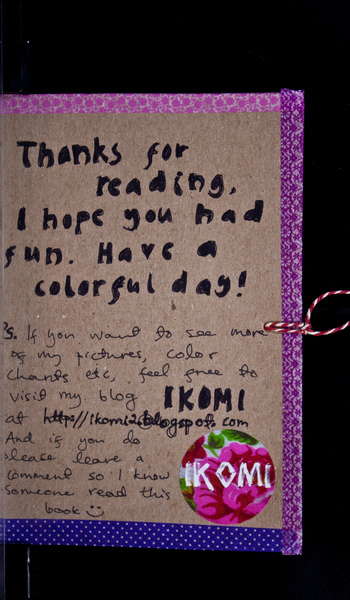 Thanks for
reading,
I hope you had
fun. Have a
colorful day!
P.S. If you want to see more
of my pictures, color
charts etc, feel free to
visit my blog IKOMI
at http://ikomi26.blogspots.com
And if you do
please leave a
comment so I know
someone read this
book
IKOMI